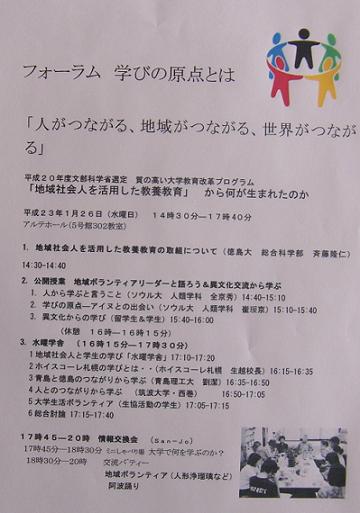 フォーラム 学びの原点とは
「人がつながる、地域がつながる、世界がつなが
る」
平成20年度文部科学省選定 質の高い大学教育改革プログラム
「地域社会人を活用した教養教育」 から何が生まれたのか
平成23年1月26日(水曜日) 14時30分―17時40分
アルテホール(5号館302教室)
1. 地域社会人を活用した教養教育の取組について(徳島大 総合科学部 斉藤隆仁)
14:30-14:40
2. 公開授業 地域ボランティアリーダーと語ろう&異文化交流から学ぶ
1. 人から学ぶと言うこと(ソウル大 人類学科 全京秀)14:40-15:10
2. 学びの原点―アイヌとの出会い(ソウル大 人類学科 崔琮京)15:10-15:40
3. 異文化からの学び(留学生&学生)15:40-16:00
(休憩 16時―16時15分)
3. 水曜学舎 (16時15分―17時30分)
1地域社会人と学生の学び「水曜学舎」17:10-17:20
2ホイスコーレ札幌の学びとは・・(ホイスコーレ札幌 生越校長)16:15-16:35
3青島と徳島のつながりから学ぶ(青島理工大 劉潔)16:35-16:50
4人とのつながりから学ぶ (筑波大学・西巻) 16:50-17:05
5大学生活ボランティア(生協活動の学生)17:05-17:15
6総合討論 17:15-17:40
17時45―20時 情報交換会 (San-Jo)
17時45分―18時30分 ミニしゃべり場 大学で何を学ぶのか?
18時30分―20時 交流パティー
地域ボランティア(人形浄瑠璃など)
阿波踊り